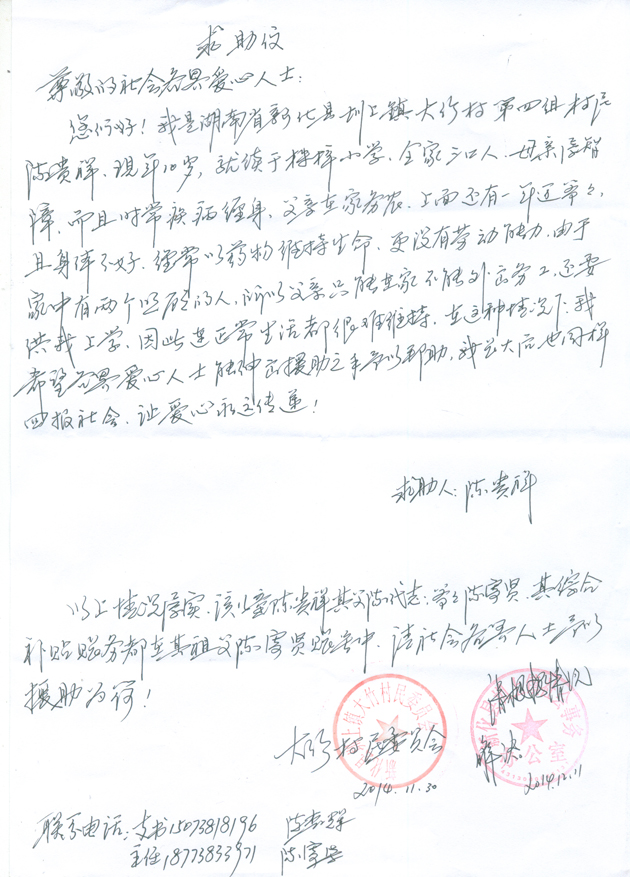 求助信
尊敬的社会各界爱心人士：
您们好！我是湖南省新化县圳上镇大竹村第四组村民
陈贵祥，现年10岁，就读于梓梓小学，全家三口人，母亲属智
障，而且时常疾病缠身，父亲在家务农，上面还有一年迈爷爷，
且身体不好，经常以药物维持生命，更没有劳动能力，由于
家中有两个照顾的人，所以父亲只能在家不能外出务工，还要
供我上学，因此连正常生活都很难维持，在这种情况下，我
希望各界爱心人士能伸出援助之手予以帮助，我长大后也同样
回报社会，让爱心永远传递！
求助人：陈贵祥
以上情况属实，该儿童陈贵祥其父陈代志，爷爷陈富贤，其综合
补贴账务都在其祖父陈富贤账者中，请社会各界人士予以
援助为荷！
大竹村民委员会
2014.11.30
请根据情况
解决
2014.12.11
联系电话：支书15073818196 陈贵群
主任18773833971 陈